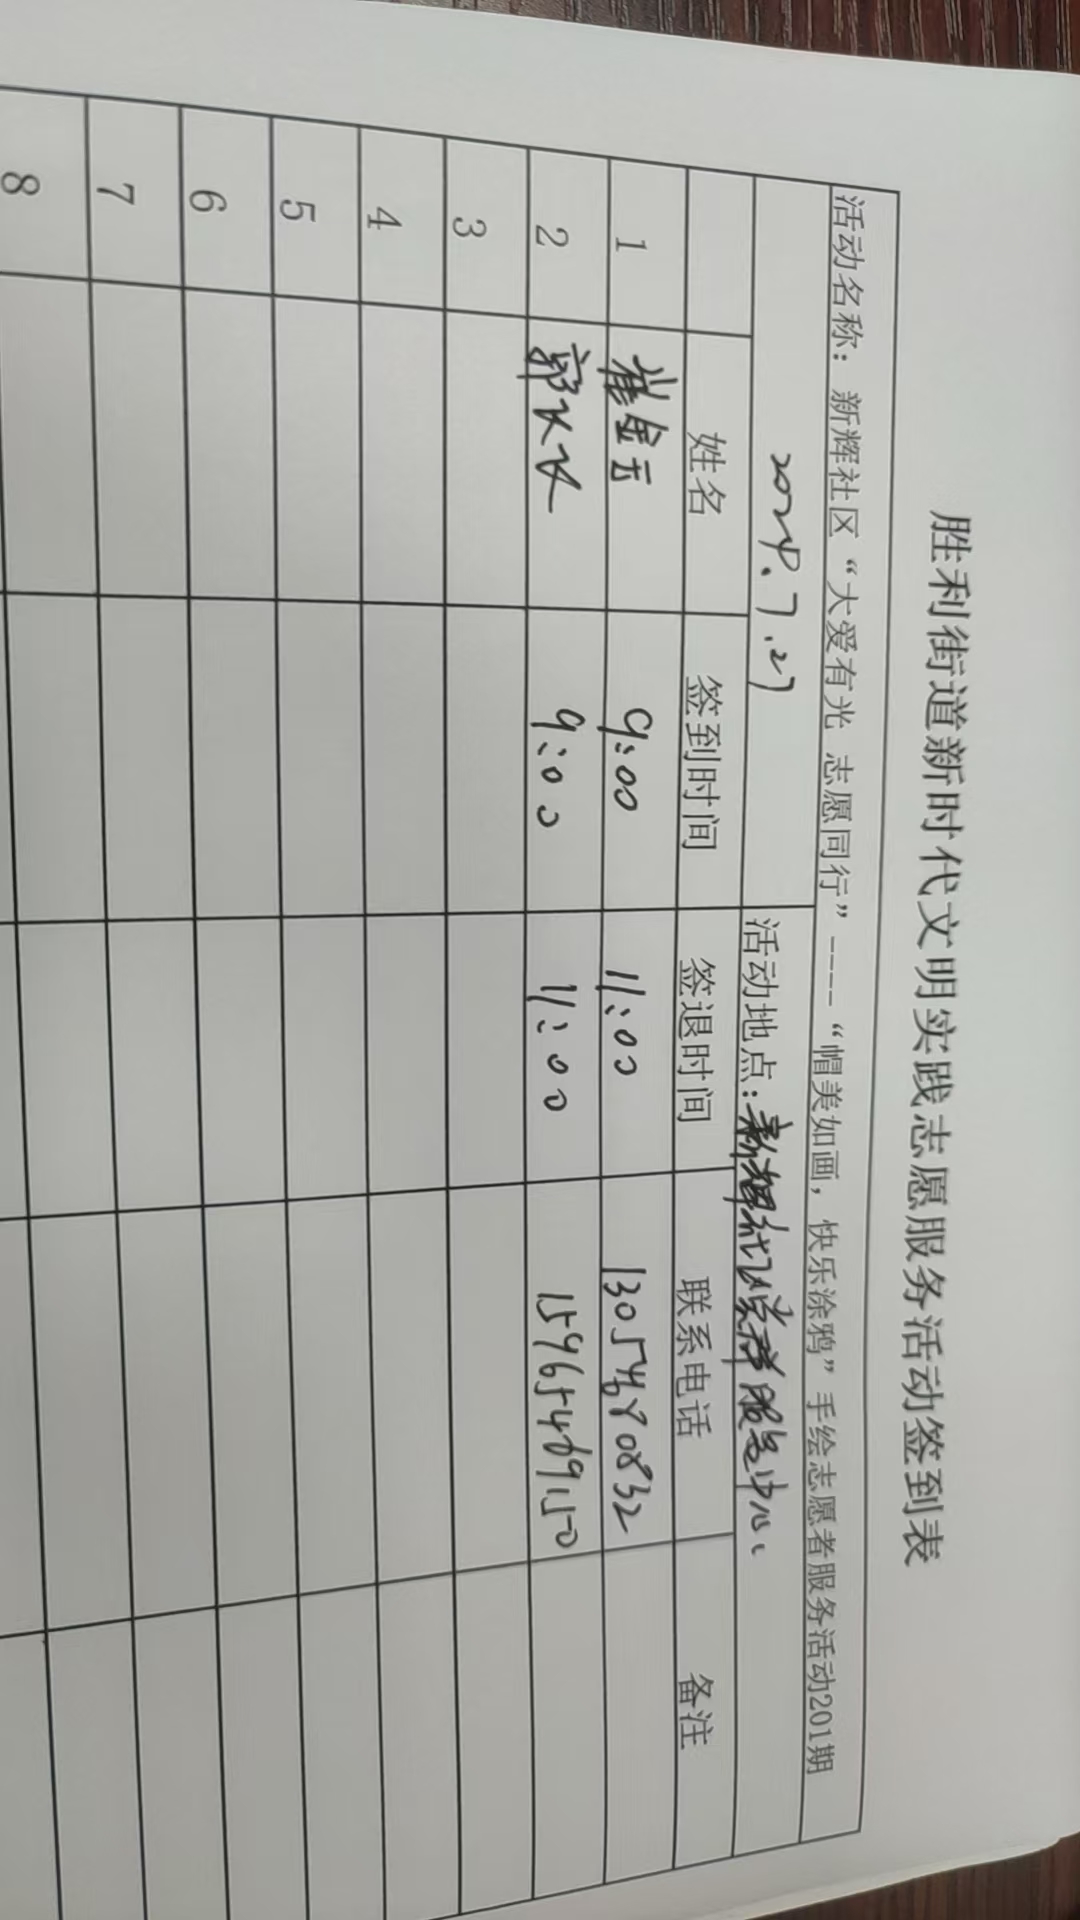 胜利街道新时代文明实践志愿服务活动签到表
活动名称：新辉社区“大爱有光 志愿同行”----“帽美如画，快乐涂鸦”手绘志愿者服务活动201期
2024.7.27 活动地点：新辉社区党群服务中心
姓名 签到时间 签退时间 联系电话 备注
1 崔金云 9:00 11:00
2 郭 9:00 11:00 15965469150
3
4
5
6
7
8